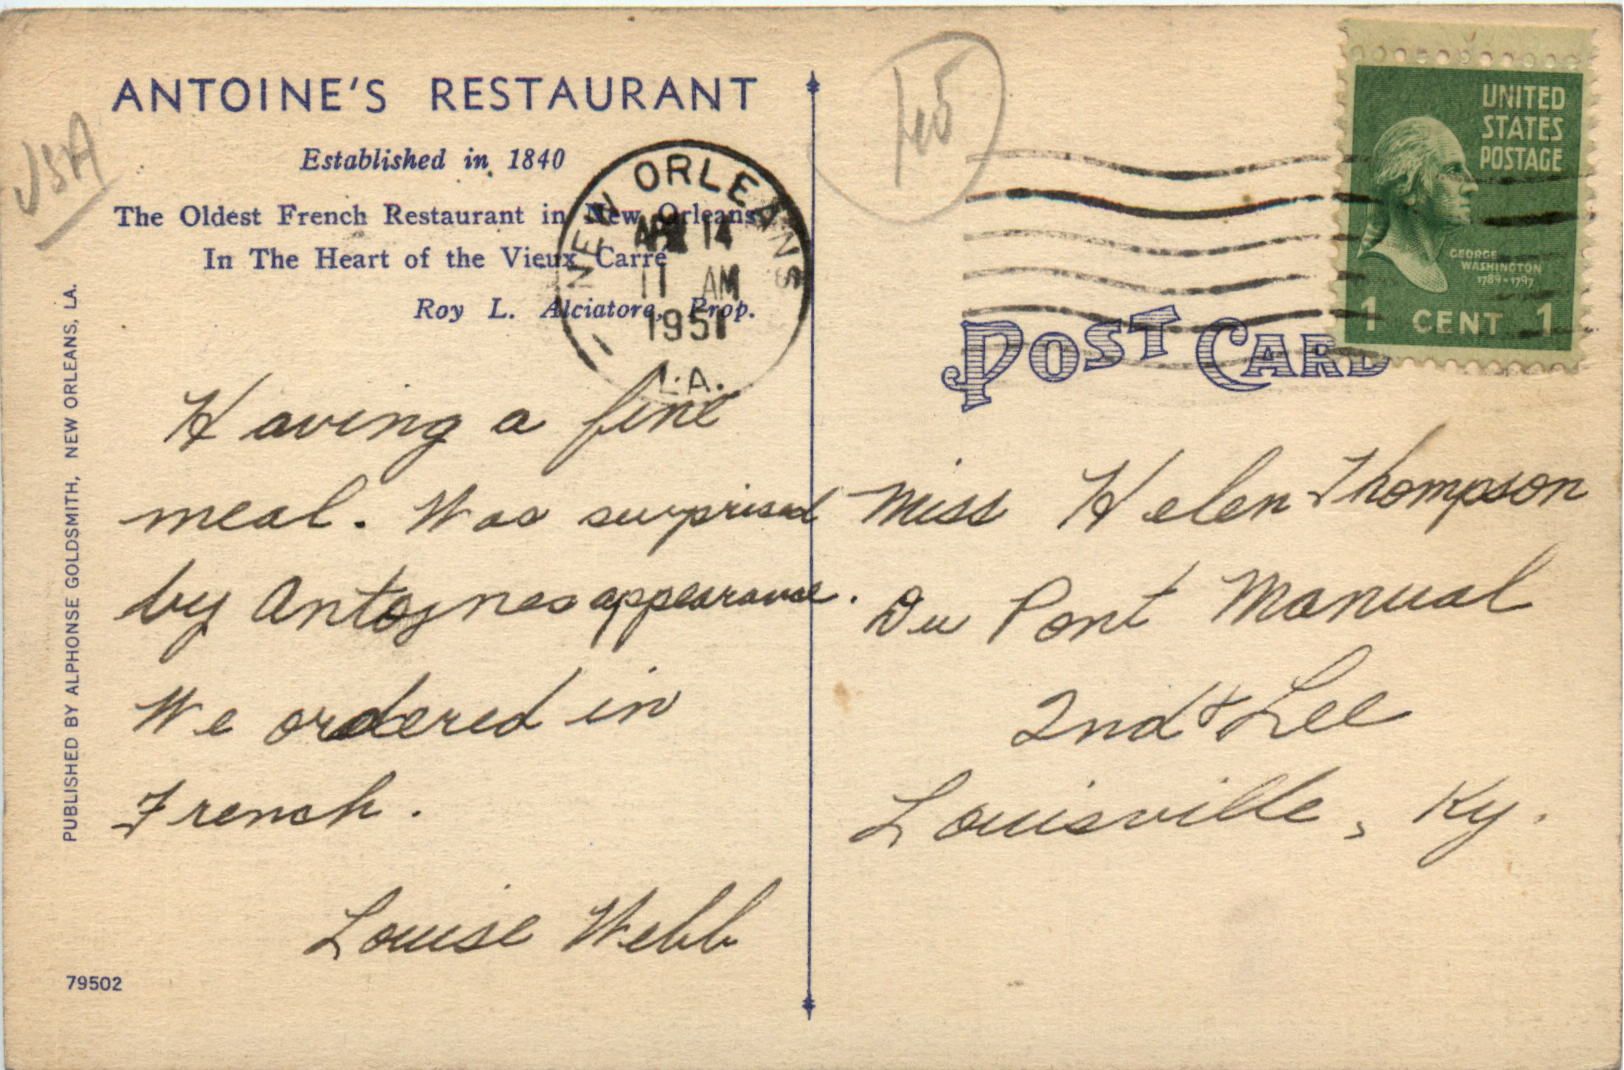 ANTOINE'S RESTAURANT
Established in 1840
The Oldest French Restaurant in New Orleans
In The Heart of the Vieux Carre
Roy L. Alciatore, Prop.
NEW ORLEANS
APR 14
11 AM
1951
LA.
USA
Having a fine
meal. Was surprised
by Antoynes appearance.
We ordered in
French.
Louise Webb
PUBLISHED BY ALPHONSE GOLDSMITH, NEW ORLEANS, LA.
79502
UNITED
STATES
POSTAGE
GEORGE
WASHINGTON
1789-1797
1 CENT 1
POST CARD
Miss Helen Thompson
Du Pont Manual
2nd & Lee
Louisville, Ky.